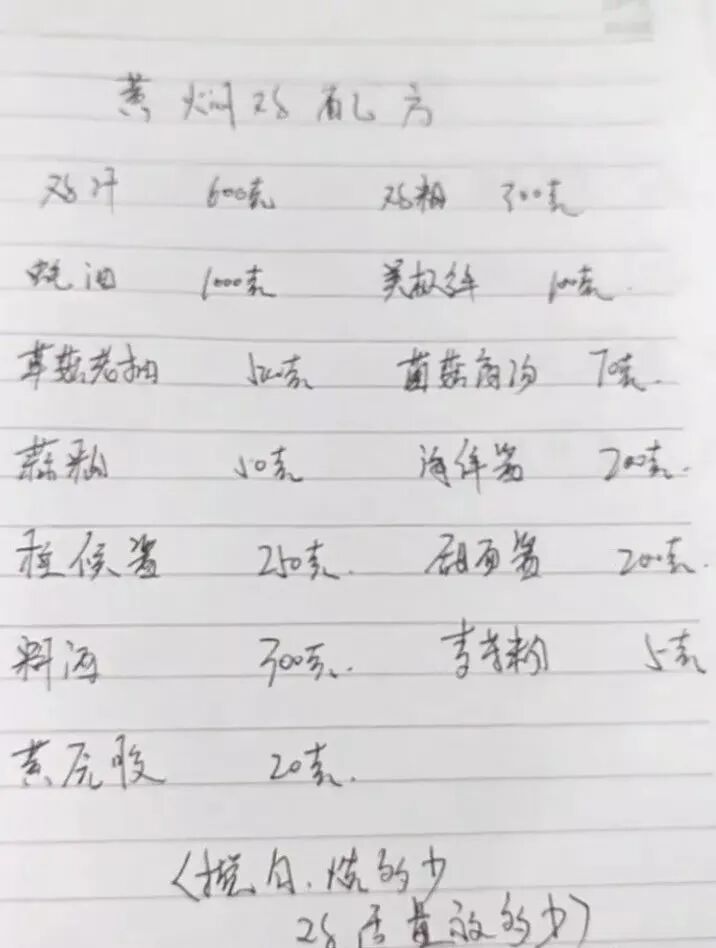 黄焖鸡配方
鸡汁 600克 鸡粉 300克
蚝油 1000克 美极鲜 100克.
草菇老抽 500克 菌菇高汤 70克.
蒜粉 50克 海鲜酱 200克.
柱候酱 250克. 甜面酱 200克.
料酒 300克. 麦芽粉 5克
黄原胶 20克.
鸡 质量放的少)